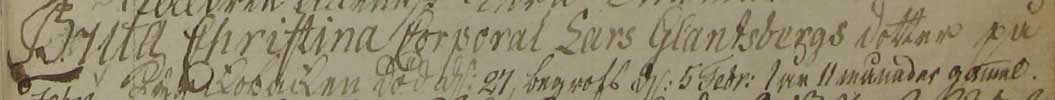 Brita Christina Corporal Lars Glantsbergs dotter på
död d/: 27, begrofs d/: 5 Febr: 1 år 11 månader gamel.